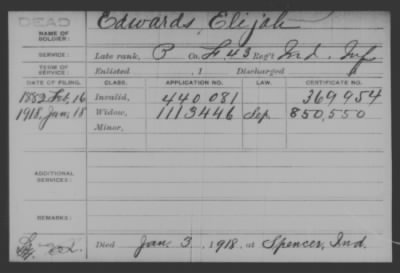 DEAD
NAME OF SOLDIER: Edwards, Elijah
SERVICE: Late rank, P Co. H 43 Reg't Ind. Inf
TERM OF SERVICE: Enlisted , 1 Discharged
DATE OF FILING. CLASS. APPLICATION NO. LAW. CERTIFICATE NO.
1882 Feb, 16 Invalid, 440 081 369954
1918, Jan, 18 Widow, 1113446 Sep 850,550
Minor,
ADDITIONAL SERVICES:
REMARKS:
Died Jan. 3, 1918, at Spencer, Ind.